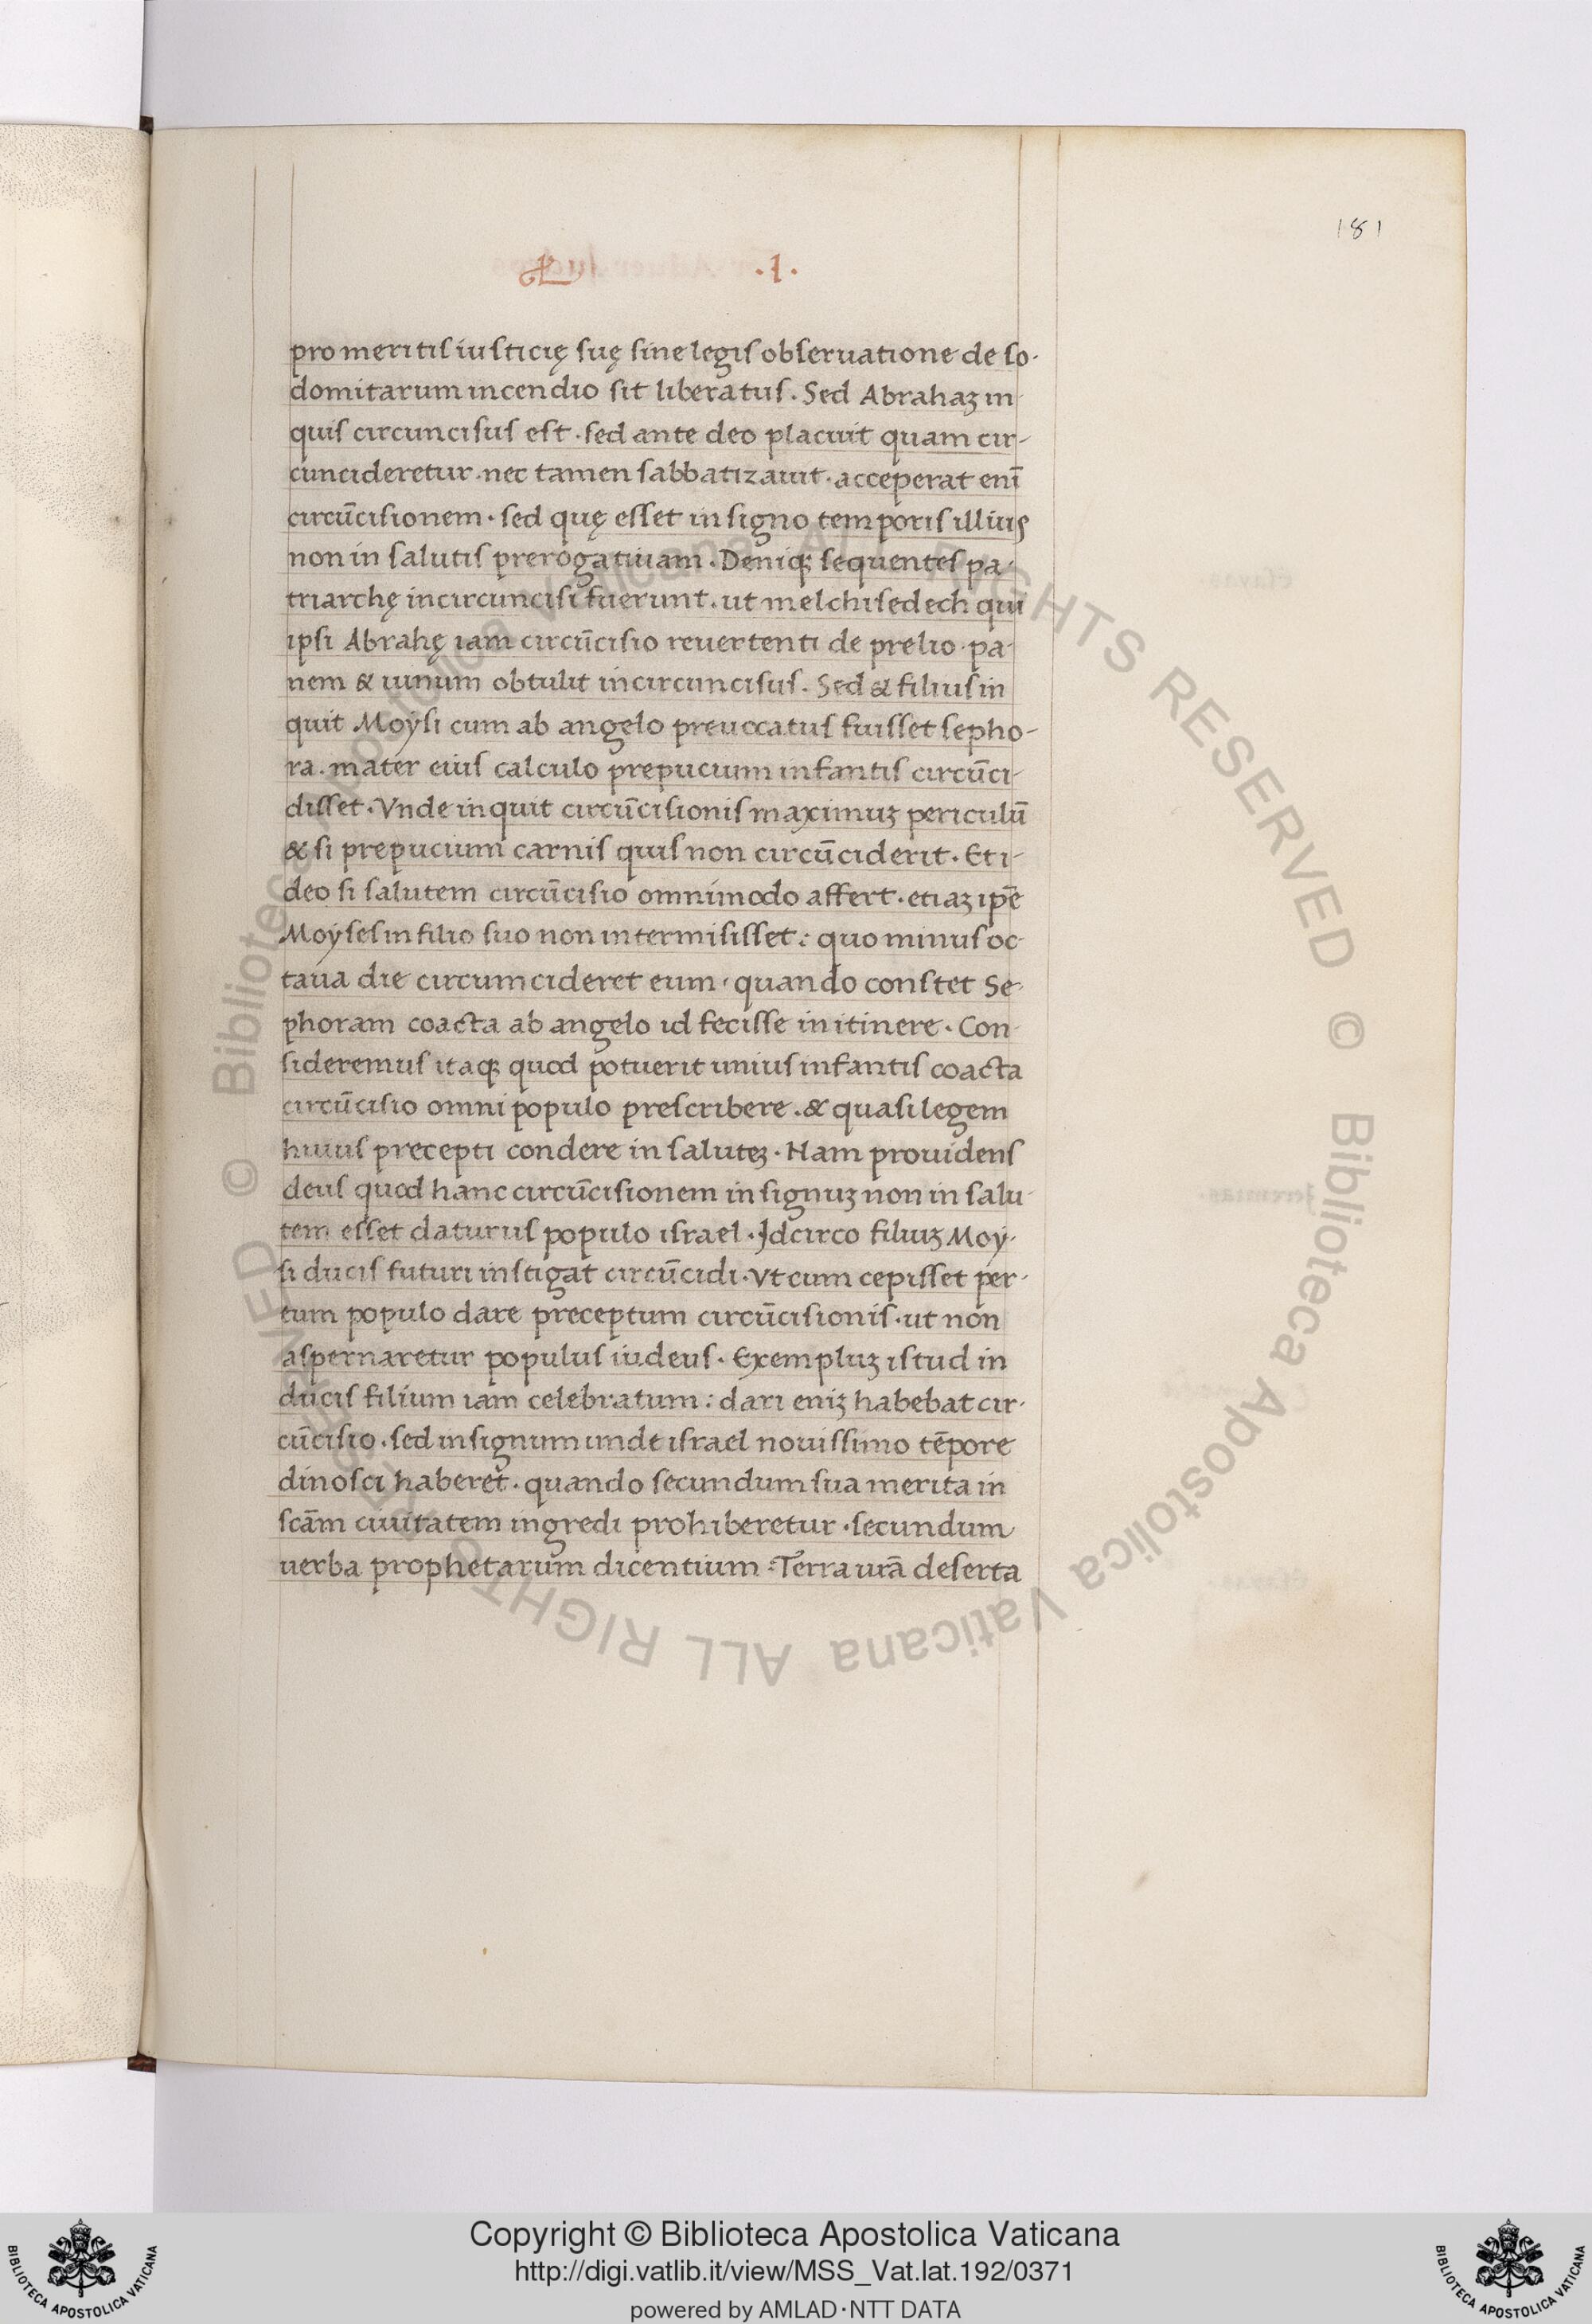 181
L · I ·
pro meritis iusticię suę sine legis obseruatione de so-
domitarum incendio sit liberatus. Sed Abrahaʒ in-
quis circuncisus est. sed ante deo placuit quam cir-
cuncideretur. nec tamen sabbatizauit. acceperat eni᷑
circūcisionem. sed quę esset in signo temporis illius
non in salutis prerogatiuam. Deniqꝫ sequentes pa-
triarchę incircuncisi fuerunt. ut melchisedech qui
ipsi Abrahę iam circūcisio reuertenti de prelio. pa-
nem & uinum obtulit incircuncisus. Sed & filius in
quit Moÿsi cum ab angelo preuocatus fuisset sepho-
ra. mater eius calculo prepucium infantis circūci-
disset. Vnde inquit circūcisionis maximuʒ periculū
& si prepucium carnis quis non circūciderit. Et i-
deo si salutem circūcisio omnimodo affert. etiaʒ ip̄e
Moÿses in filio suo non intermisisset: quo minus oc-
taua die circumcideret eum. quando constet Se-
phoram coacta ab angelo id fecisse in itinere. Con-
sideremus itaqꝫ quod potuerit unius infantis coacta
circūcisio omni populo prescribere. & quasi legem
huius precepti condere in saluteʒ. Nam prouidens
deus quod hanc circūcisionem in signuʒ non in salu-
tem esset daturus populo israel. Idcirco filiuʒ Moÿ-
si ducis futuri instigat circūcidi. Vt cum cepisset per-
tum populo dare preceptum circūcisionis. ut non
aspernaretur populus iudeus. Exempluʒ istud in
ducis filium iam celebratum: dari eniʒ habebat cir-
cūcisio. sed in signum unde israel nouissimo tēpore
dinosci haberet. quando secundum sua merita in
scām ciuitatem ingredi prohiberetur. secundum
uerba prophetarum dicentium: Terra urā deserta
© Biblioteca Apostolica Vaticana ALL RIGHTS RESERVED © Biblioteca Apostolica Vaticana ALL RIGHTS RESERVED
Copyright © Biblioteca Apostolica Vaticana
http://digi.vatlib.it/view/MSS_Vat.lat.192/0371
powered by AMLAD·NTT DATA
BIBLIOTECA APOSTOLICA VATICANA
BIBLIOTECA APOSTOLICA VATICANA